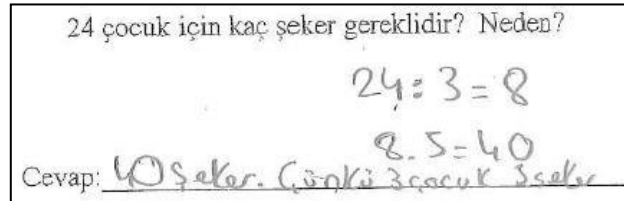 24 çocuk için kaç şeker gereklidir? Neden?
24:3=8
8.5=40
Cevap: 40 şeker. Çünkü 3 çocuk 5 şeker